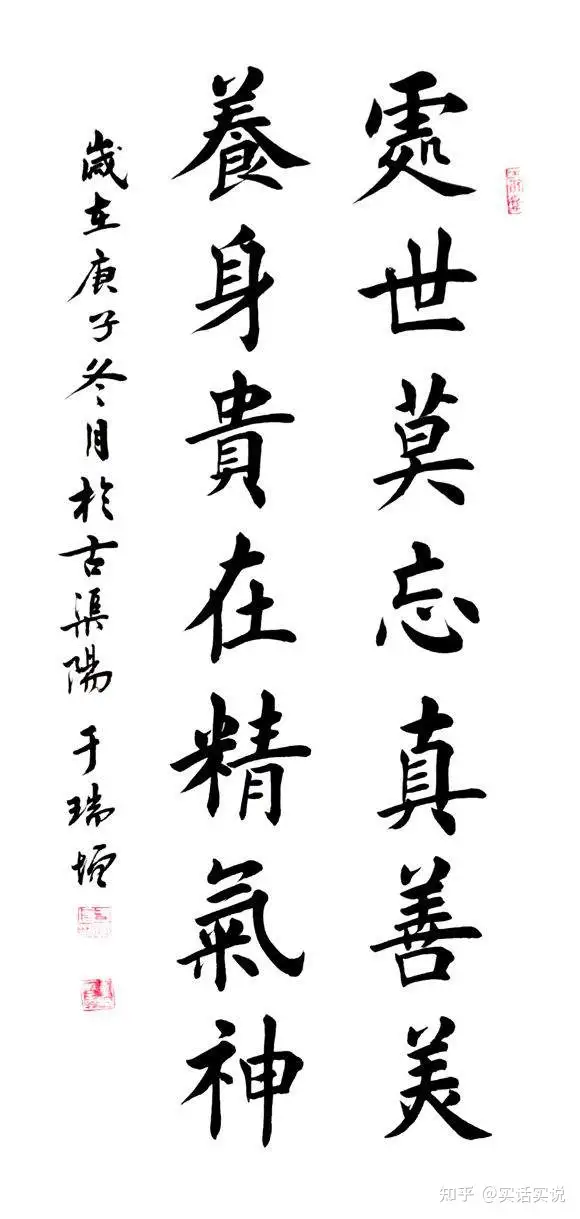 處世莫忘真善美
養身貴在精氣神
歲在庚子冬月於古渠陽 于瑞
知乎 @实话实说